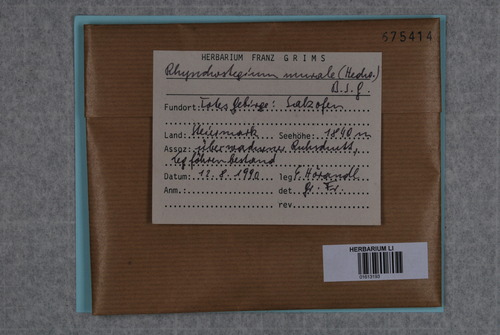 675414
HERBARIUM FRANZ GRIMS
Rhynchostegium murale (Hedw.)
B.S.G.
Fundort: Totes Gebirge: Salzofen
Land: Steiermark Seehöhe: 1840 m
Assoz: überwachsener Ruhschutt,
Legföhrenbestand
Datum: 12.8.1990 leg F. Hörandl
Anm.: det. Gr. Fr.
rev.
HERBARIUM LI